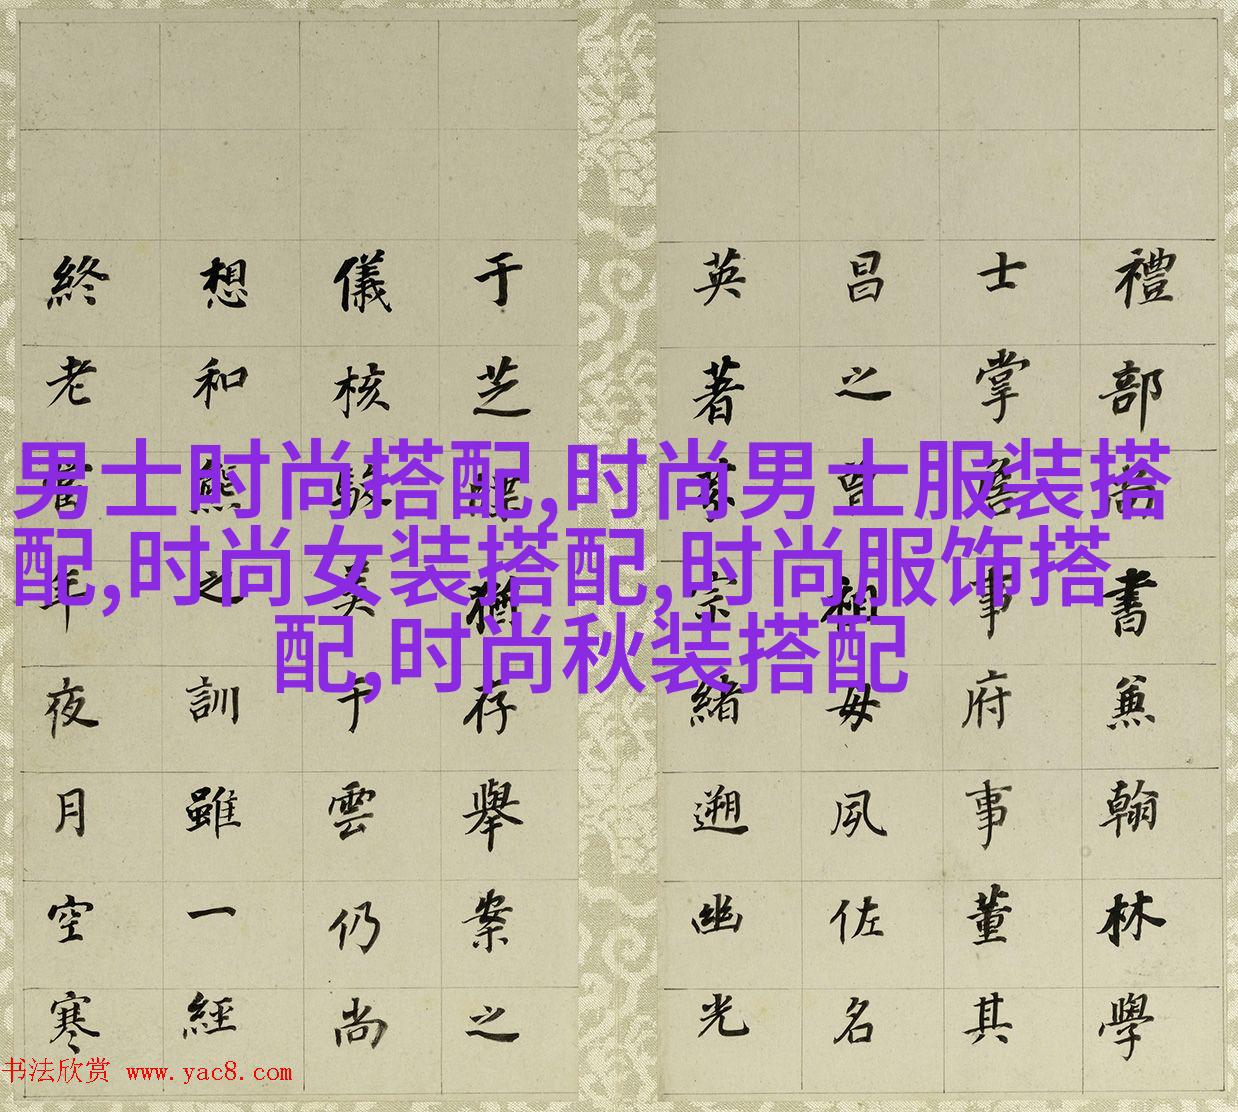 男士时尚搭配,时尚男士服装搭
配,时尚女装搭配,时尚服饰搭
配,时尚秋装搭配
禮部尚書兼翰林學
士掌詹事府事董其
昌之曾祖母夙佐名
英著宗緒遡幽光
于芝猶存舉案之
儀核駿美于雲仍尚
想和熊之訓雖一經
終老當年夜月空寒
书法欣赏 www.yac8.com